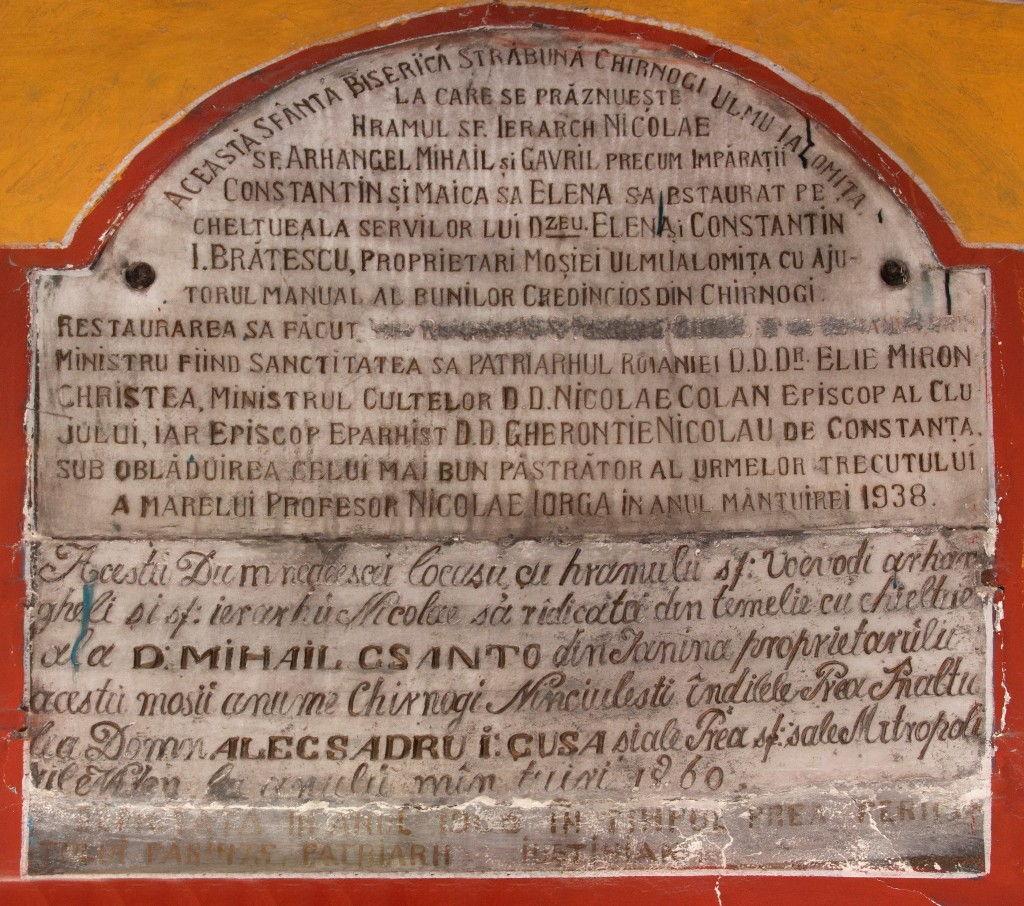 ACEASTĂ SFÂNTĂ BISERICĂ STRĂBUNĂ CHIRNOGI ULMU IALOMIȚA.
LA CARE SE PRĂZNUEȘTE
HRAMUL SF. IERARCH NICOLAE
SF. ARHANGEL MIHAIL și GAVRIL PRECUM IMPĂRAȚII
CONSTANTIN ȘI MAICA SA ELENA SA PE
CHELTUEALA SERVILOR LUI DZEU. ELENA și CONSTANTIN
I. BRĂTESCU, PROPRIETARI MOȘIEI ULMUIALOMIȚA CU AJU-
TORUL MANUAL AL BUNILOR CREDINCIOS DIN CHIRNOGI.
RESTAURAREA SA FĂCUT
MINISTRU FIIND SANCTITATEA SA PATRIARHUL D.D.DR. ELIE MIRON
CHRISTEA, MINISTRUL CULTELOR D.D. NICOLAE COLAN EPISCOP AL CLU
JULUI, IAR EPISCOP EPARHIST D.D GHERONTIE NICOLAU DE CONSTANȚA.
SUB OBLĂDUIREA CELUI MAI BUN PĂSTRĂTOR AL URMELOR TRECUTULUI
A MARELUI PROFESOR NICOLAE IORGA IN ANUL MÂNTUIREI 1938.
Acestŭ Dumnedeescŭ locașŭ cu hramulŭ sf: Voevodi arhan
gheli și sf: ierarhŭ Nicolae să ridicatŭ din temelie cu chieltue
ala D. MIHAIL CSANTO din Ianina proprietarŭlŭ
acestŭ moșii anume Chirnogi Ninciulesti îndilele Prea Înaltu
lŭi Domn ALECSADRU I: CUSA și ale Prea sf: sale Mitropoli
la anulŭ 1860
IN TIMPUL PREA FERICI
PATRIARH IUSTINIAN